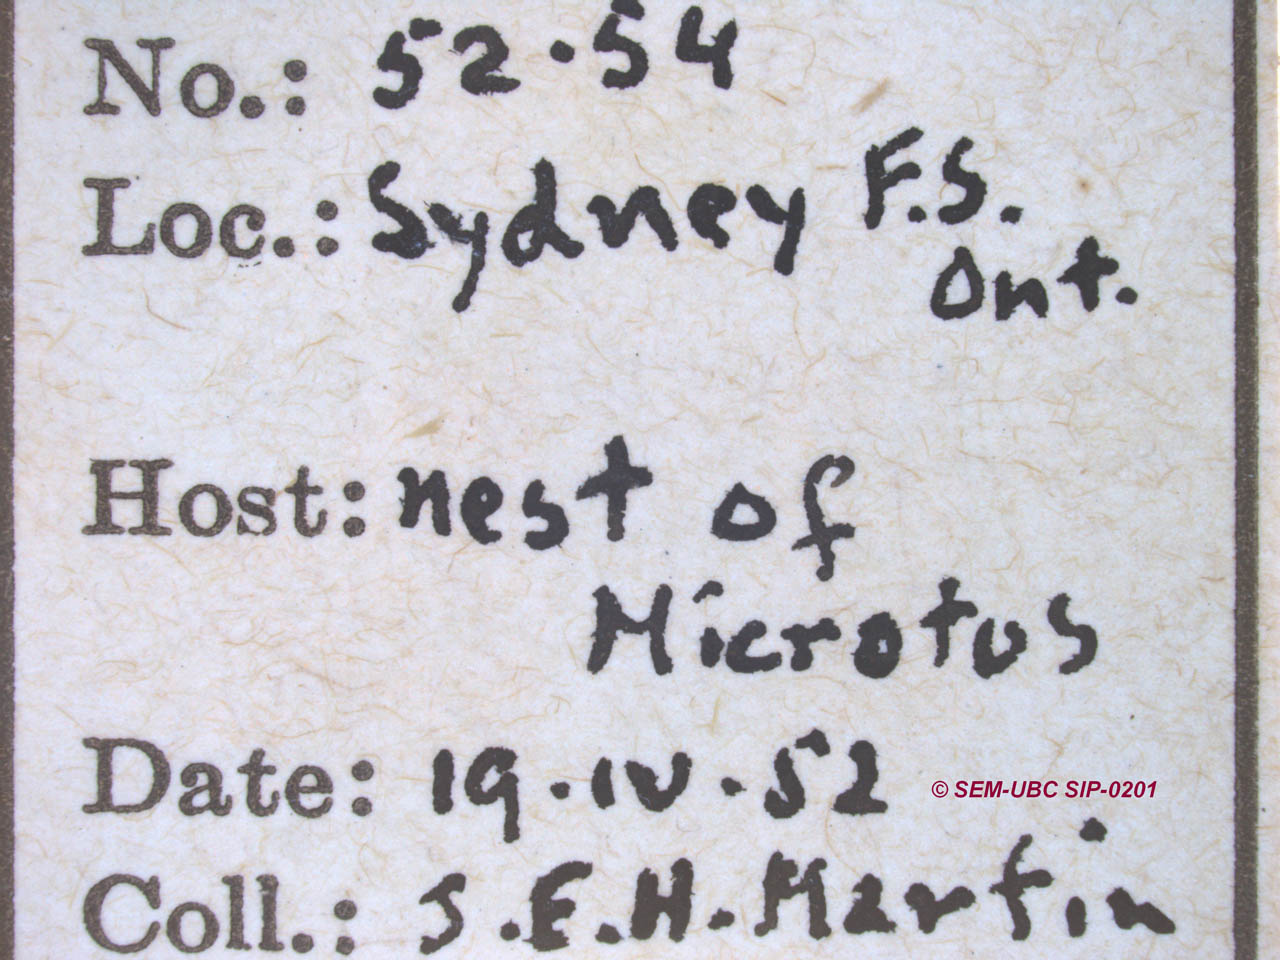 No.: 52.54
Loc.: Sydney F.S.
Ont.
Host: nest of
Microtus
Date: 19.IV.52
© SEM-UBC SIP-0201
Coll.: J.E.H.Martin